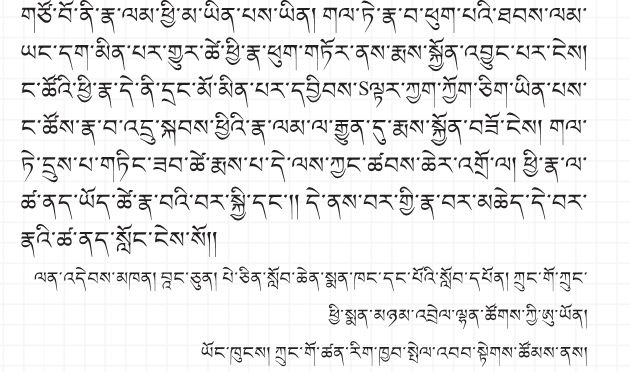 གཙོ་བོ་ནི་རྣ་ལམ་ཕྱི་མ་ཡིན་པས་ཡིན། གལ་ཏེ་རྣ་བ་ཕུག་པའི་ཐབས་ལམ་
ཡང་དག་མིན་པར་གྱུར་ཚེ་ཕྱི་རྣ་ཕུག་གཏོར་ནས་རྨས་སྐྱོན་འབྱུང་པར་ངེས།
ང་ཚོའི་ཕྱི་རྣ་དེ་ནི་དྲང་མོ་མིན་པར་དབྱིབས་Sལྟར་ཀྱག་ཀྱོག་ཅིག་ཡིན་པས་
ང་ཚོས་རྣ་བ་འདྲུ་སྐབས་ཕྱིའི་རྣ་ལམ་ལ་རྒྱུན་དུ་རྨས་སྐྱོན་བཟོ་ངེས། གལ་
ཏེ་དྲུས་པ་གཏིང་ཟབ་ཚེ་རྨས་པ་དེ་ལས་ཀྱང་ཚབས་ཆེར་འགྲོ་ལ། ཕྱི་རྣ་ལ་
ཚ་ནད་ཡོད་ཚེ་རྣ་བའི་བར་སྐྱི་དང་།། དེ་ནས་བར་གྱི་རྣ་བར་མཆེད་དེ་བར་
རྣའི་ཚ་ནད་སློང་ངེས་སོ།།
ལན་འདེབས་མཁན། བྷང་ཅུན། པེ་ཅིན་སློབ་ཆེན་སྨན་ཁང་དང་པོའི་སློབ་དཔོན། ཀྲུང་གོ་ཀྲུང་
ཕྱི་སྨན་མཉམ་འབྲེལ་ལྷན་ཚོགས་ཀྱི་ཨུ་ཡོན།
ཡོང་ཁུངས། ཀྲུང་གོ་ཚན་རིག་ཁྱབ་སྤེལ་འབབ་སྟེགས་ཚོམས་ནས།